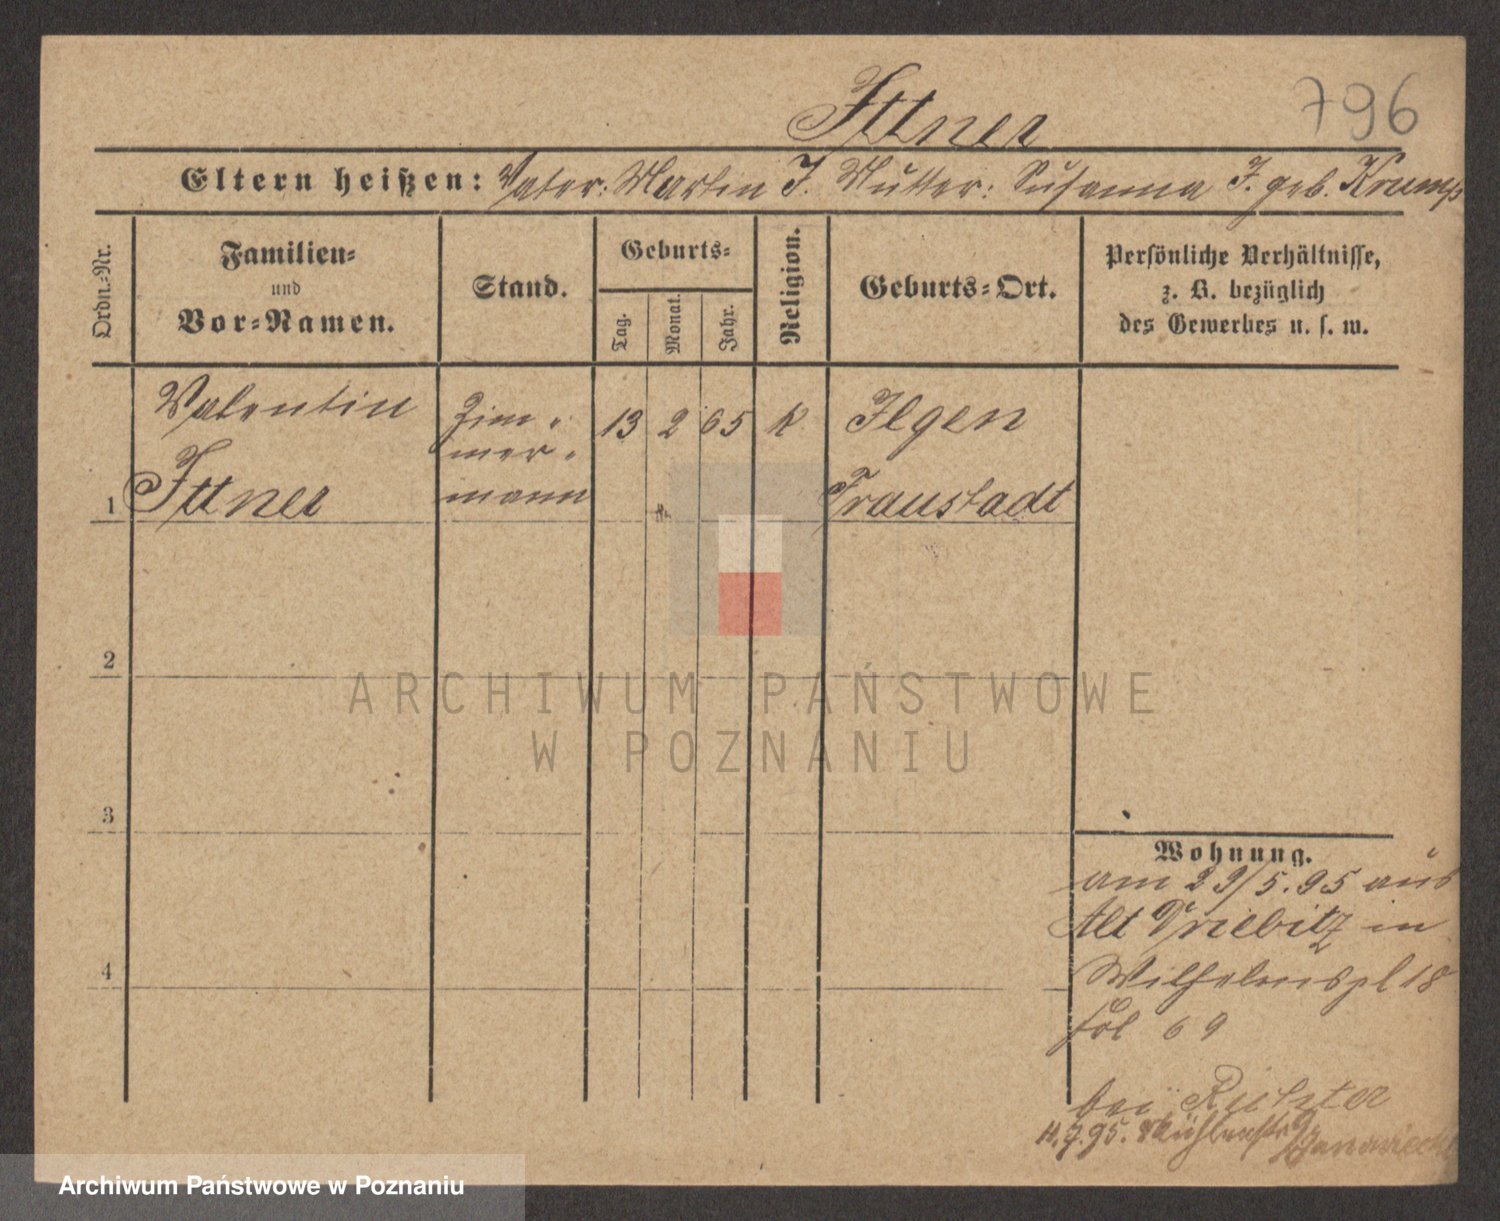 796
Ittner
Eltern heißen: Vater: Martin I. Mutter: Susanna I. geb. Krump
Ordn.-Nr.
Familien-
und
Vor-Namen.
Stand.
Geburts-
Tag.
Monat.
Jahr.
Religion.
Geburts-Ort.
Persönliche Verhältnisse,
z. B. bezüglich
des Gewerbes u. s. w.
Valentin Zim- 13 2 65 k Ilgen
mer-
1 Ittner mann Fraustadt
2
3
4
Wohnung.
am 23/5.95 aus
Alt Driebitz in
Wilhelmspl 18
fol 69
bei Richter
11.7.95. Mühlenstr 9
ARCHIWUM PAŃSTWOWE
W POZNANIU
Archiwum Państwowe w Poznaniu